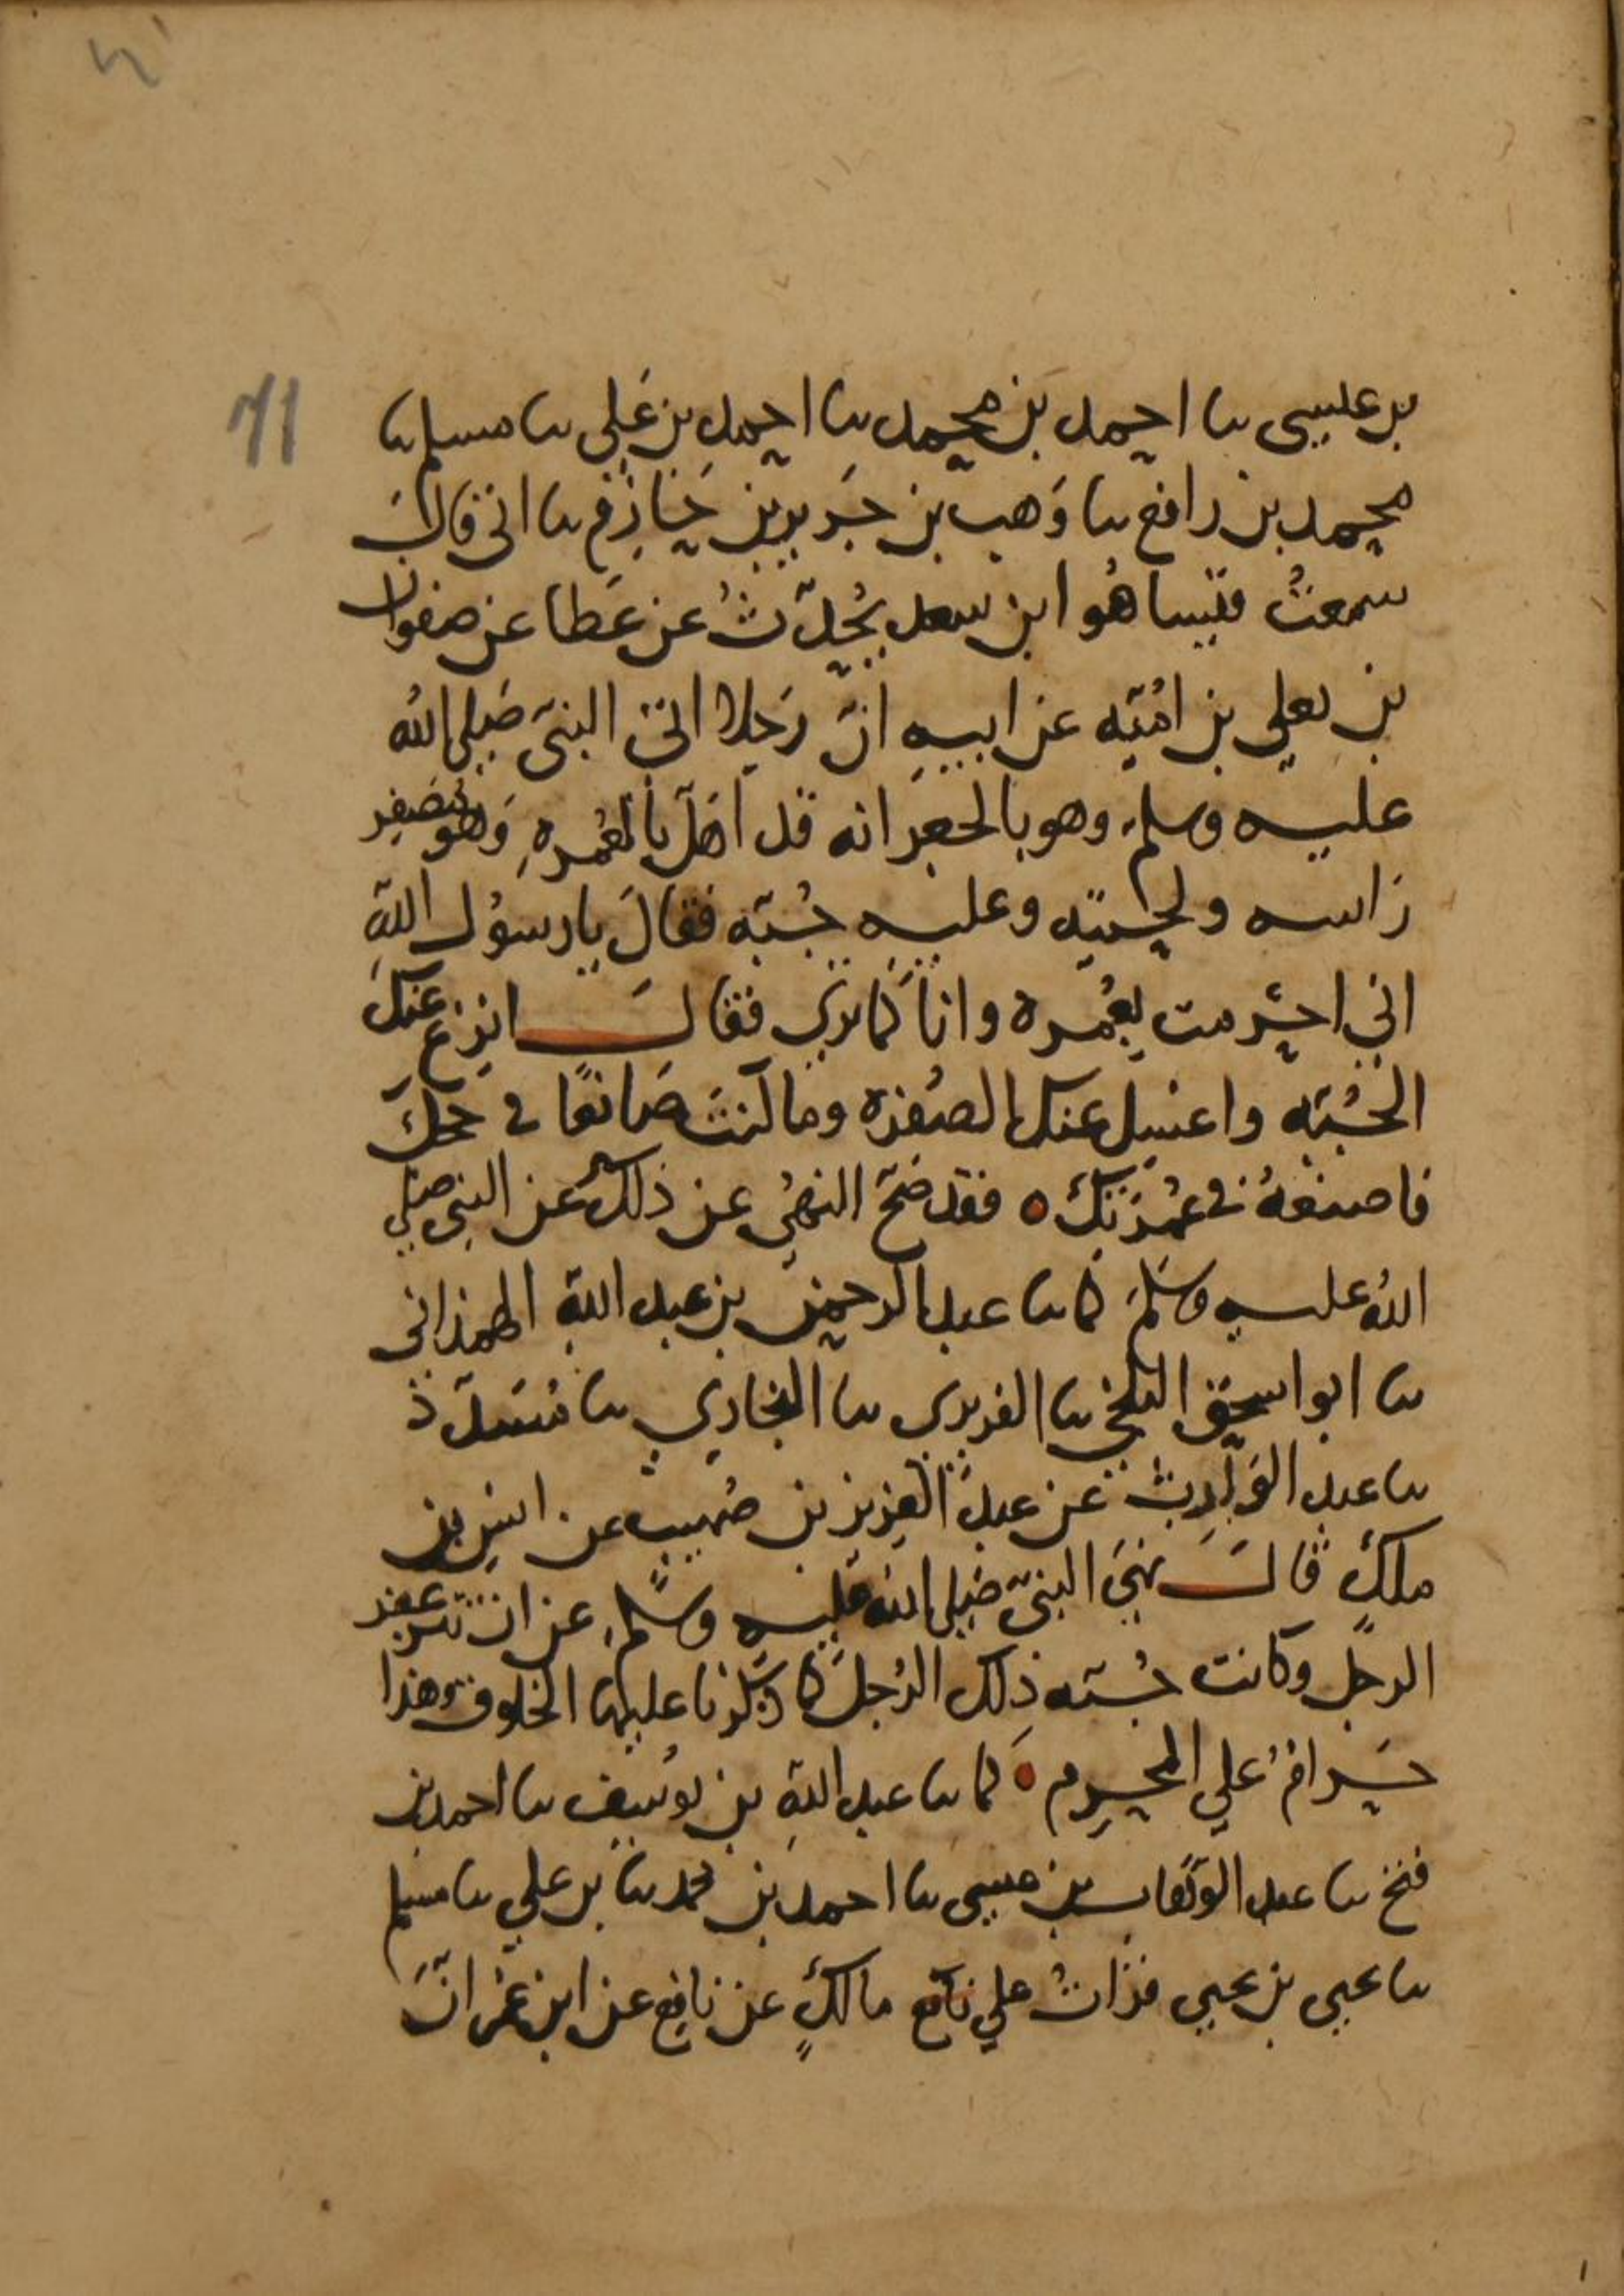 ٧١
بن عيسى نا احمد بن محمد نا احمد بن علي نا مسلم نا
محمد بن رافع نا وَهب بن جَرير بن حَازِم نا ابي قالَ
سمعتُ قيسا هُو ابن سعد يُحدّثُ عن عَطا عن صفوان
بن يعلي بن امُيّه عن ابيهِ انّ رَجلا اتى النبيّ صَلى اللهُ
عليه وسلم وهو بالجعرانه قد اَهَلّ بالعُمرهِ وَهو مُصَفِر
رَاسه ولحيتهِ وعليه جُبّه فقالَ يا رسوُل اللهِ
اني احرمت بِعُمره وانا كَما تري فقالَ انزع عنكَ
الجُبّه واغسِل عنك الصُفره وما كنتَ صَانعًا في حَجكَ
فاصنعهُ في عُمرَتِكَ ه فقد صَحّ النهيُ عن ذلك عن النبي صلي
اللهُ عليه وسَلمَ كما نا عبد الرحمن بن عبد اللهِ الهمذاني
نا ابو اسحق البلخي نا الفربري نا البخاري نا مُسَدّد
نا عبد الوَارِث عن عبد العَزيز بن صُهيبٍ عن انسِ بن
ملكٍ قالَ نهَي النبيّ صَلى اللهُ عَليه وسَلم عن ان يتزعفر
الرجل وكانت جُبّه ذلِك الرُجلَ كما ذكَرنا عليها الخلوق وَهذا
حَرامُ علي المحرِم ه كما نا عبد اللهِ بن يوسُف نا احمد بن
فتح نا عبد الوَهّاب بن عيسى نا احمد بن محمد نا بن علي نا مسلم
نا يحيي بن يحيي قراتُ علي مالكٍ عن نافِع عن ابن عُمر انّ